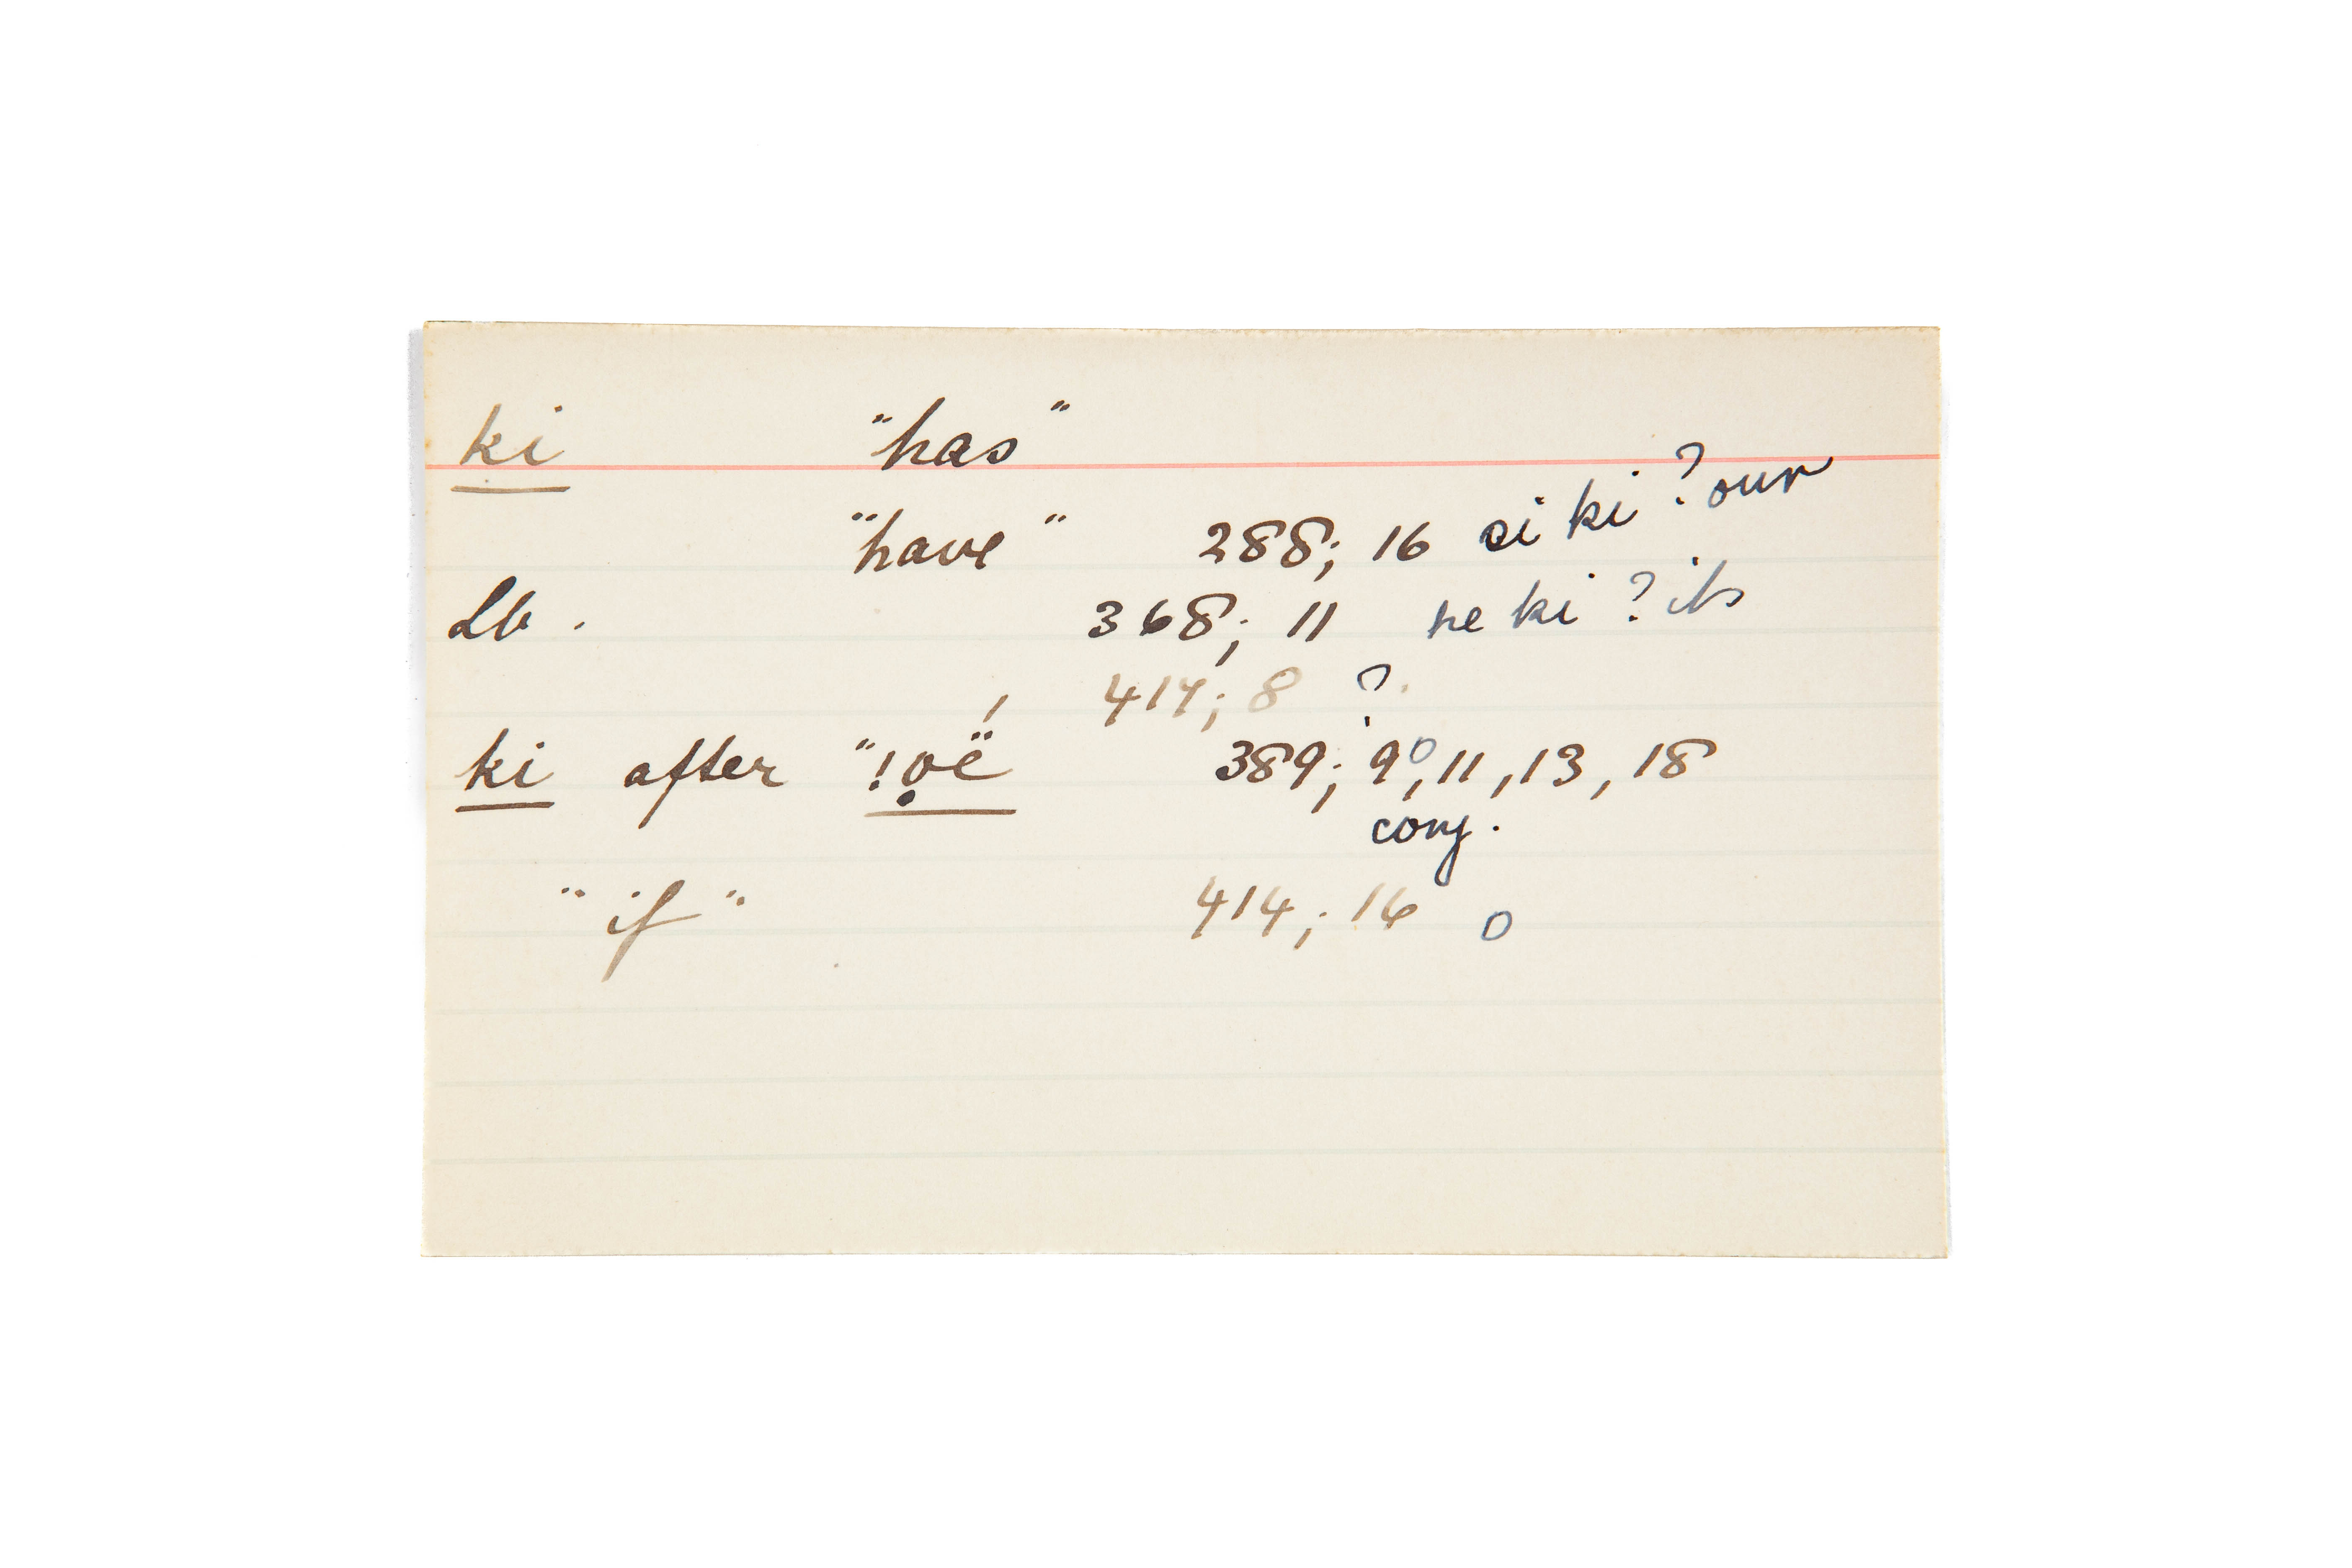 ki "has"
"have" 288; 16 si ki ? our
Lb. 368; 11 he ki ? its
417; 8 ?
ki after "!ọë" 389; 9⁰, 11, 13, 18
conj.
"if" 414; 16 0